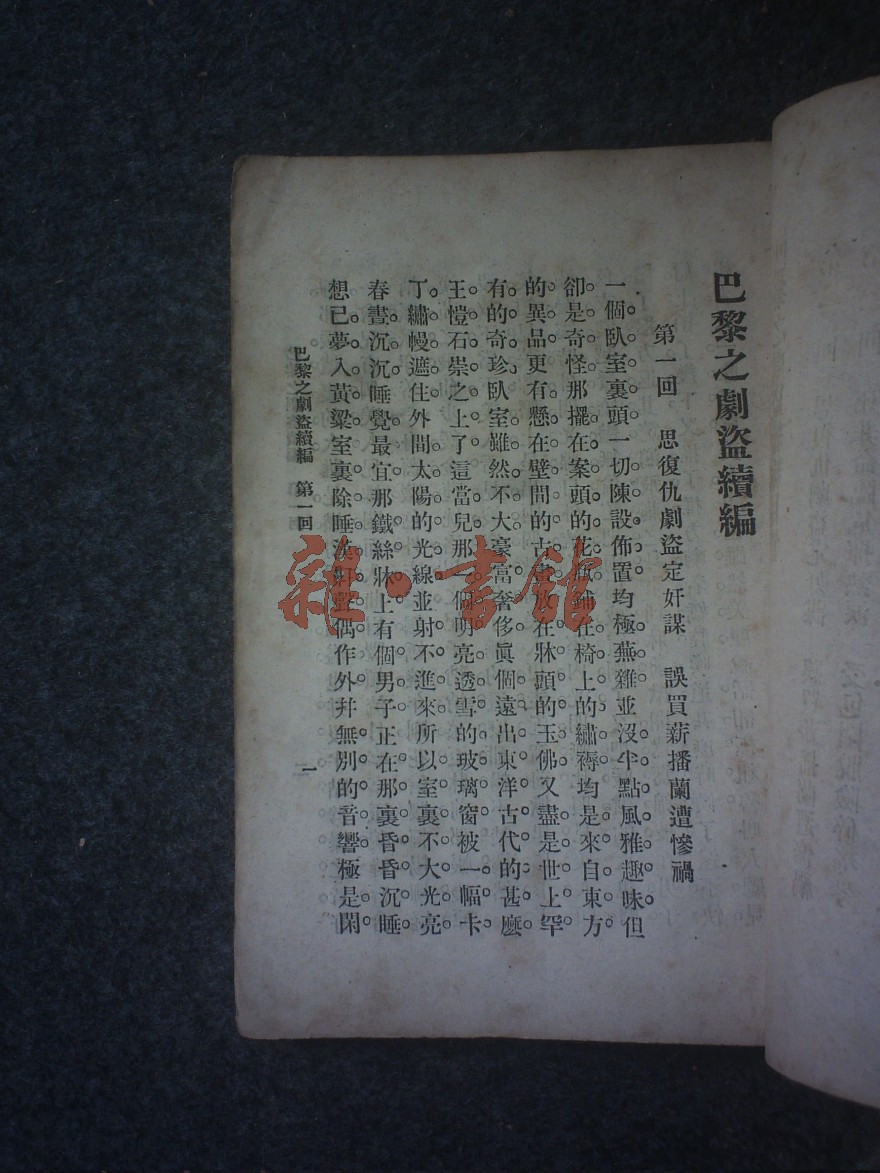 巴黎之劇盜續編
第一回 思復仇劇盜定奸謀 誤買薪播蘭遭慘禍
一個臥室裏頭。一切陳設佈置。均極燕雜。並沒半點風雅趣味。但
卻是奇怪。那擺在案頭的花瓶。鋪在椅上的繡褥。均是來自東方
的異品。更有懸在壁間的古畫。放在牀頭的玉佛。又盡是世上罕
有的奇珍。臥室雖然不大。豪富奢侈。眞個遠出東洋古代的甚麽
王愷石崇之上了。這當兒那一個明亮透雪的玻璃窗。被一幅卡
丁繡幔。遮住外間太陽的光線。並射不進來。所以室裏不大光亮。
春晝沉沉。睡覺最宜。那鐵絲牀上。有個男子。正在那裏昏昏沉睡。
想已夢入黃粱。室裏除睡漢鼾聲偶作外。幷無別的音響。極是閑
巴黎之劇盜續編 第一回
一
雜·書館